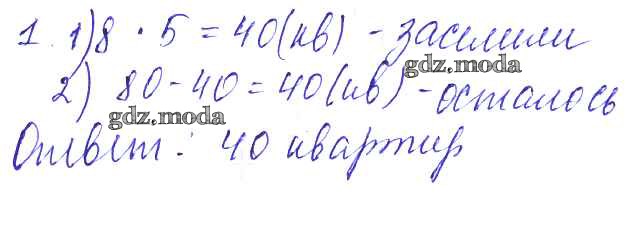 1. 1) 8 · 5 = 40 (кв) - заселили
gdz.moda
2) 80 - 40 = 40 (кв) - осталось
gdz.moda
Ответ: 40 квартир